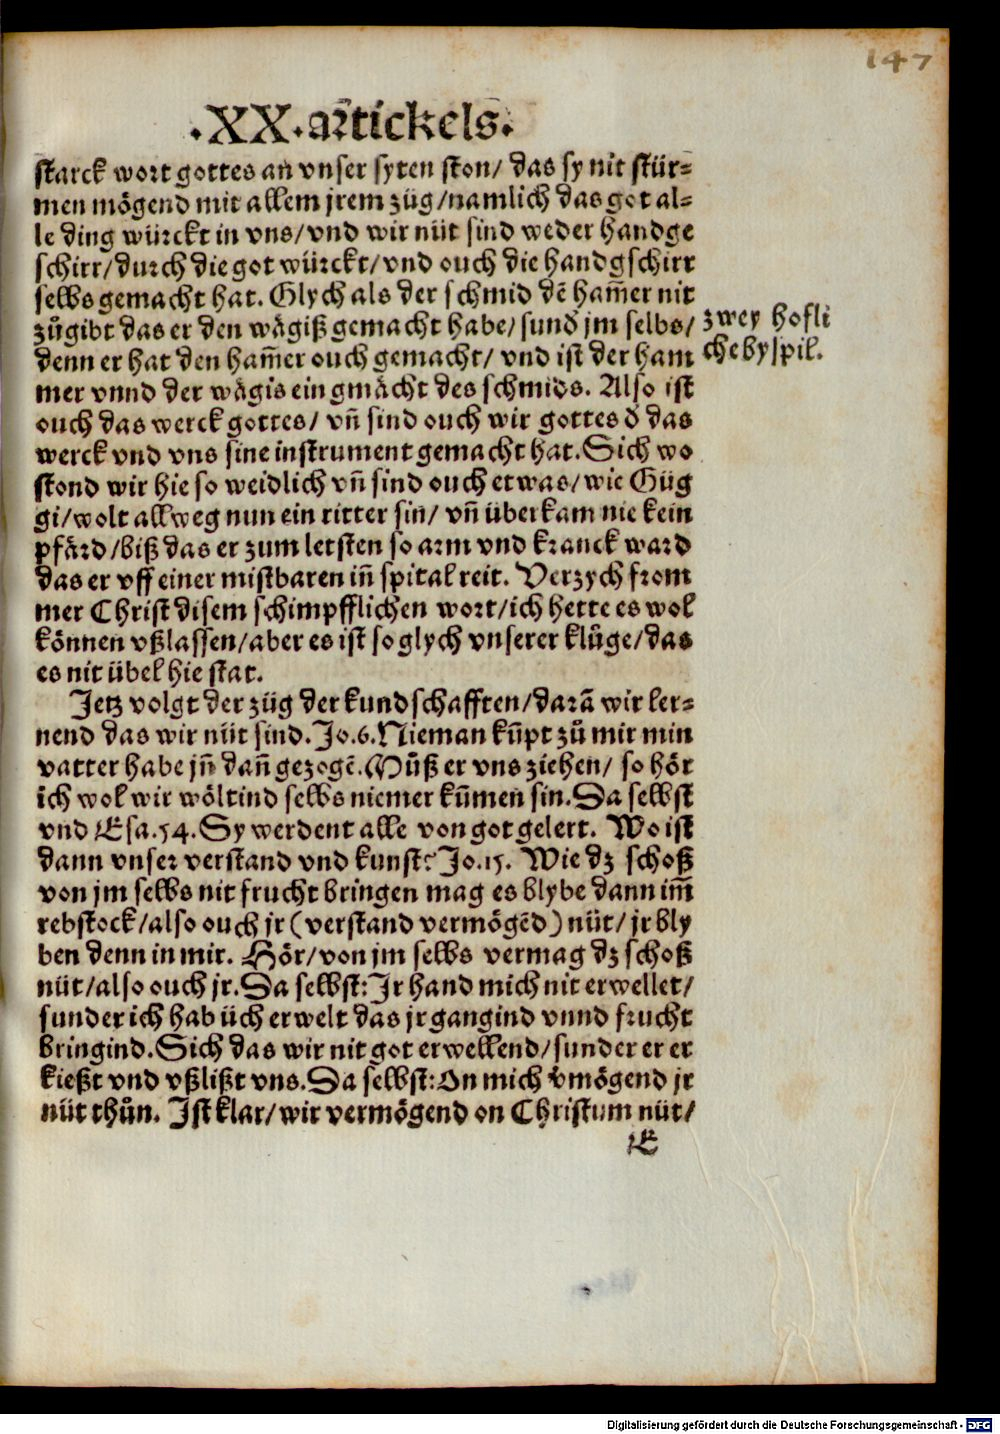 147
.XX. artickels.
starck wort gottes an vnser syten ston/ das sy nit stür-
men mögend mit allem jrem züg/ namlich das got al-
le ding würckt in vns/ vnd wir nüt sind weder handge
schirr/ durch die got würckt/ vnd ouch die handgschirr
selbs gemacht hat. Glych als der schmid dē ham̄er nit
zůgibt das er den wägiß gemacht habe/ sund̕ jm selbs/
zwey hofli
denn er hat den ham̄er ouch gemacht/ vnd ist der ham
che byspil.
mer vnnd der wägis ein gmächt des schmids. Also ist
ouch das werck gottes/ vn̄ sind ouch wir gottes d̕ das
werck vnd vns sine instrument gemacht hat. Sich wo
stond wir hie so weidlich vn̄ sind ouch etwas/ wie Güg
gi/ wolt allweg nun ein ritter sin/ vn̄ überkam nie kein
pfärd/ biß das er zum letsten so arm vnd kranck ward
das er vff einer mistbaren in̄ spital reit. Verzych from
mer Christ disem schimpfflichen wort/ ich hette es wol
können vßlassen/ aber es ist so glych vnserer klůge/ das
es nit übel hie stat.
Jetz volgt der züg der kundschafften/ darā wir ler-
nend das wir nüt sind. Jo. 6. Nieman kūpt zů mir min
vatter habe jn̄ dan̄ gezogē. Můß er vns ziehen/ so hör
ich wol wir wöltind selbs niemer kūmen sin. Da selbst
vnd Esa. 54. Sy werdent alle von got gelert. Wo ist
dann vnser verstand vnd kunst? Jo. 15. Wie dz schoß
von jm selbs nit frucht bringen mag es blybe dann im̄
rebstock/ also ouch jr (verstand vermögēd) nüt/ jr bly
ben denn in mir. Hör/ von jm selbs vermag dz schoß
nüt/ also ouch jr. Da selbst: Jr hand mich nit erwellet/
sunder ich hab üch erwelt das jr gangind vnnd frucht
bringind. Sich das wir nit got erwellend/ sunder er er
kießt vnd vßlißt vns. Da selbst: On mich v̕mögend jr
nüt thůn. Ist klar/ wir vermögend on Christum nüt/
E
Digitalisierung gefördert durch die Deutsche Forschungsgemeinschaft - DFG